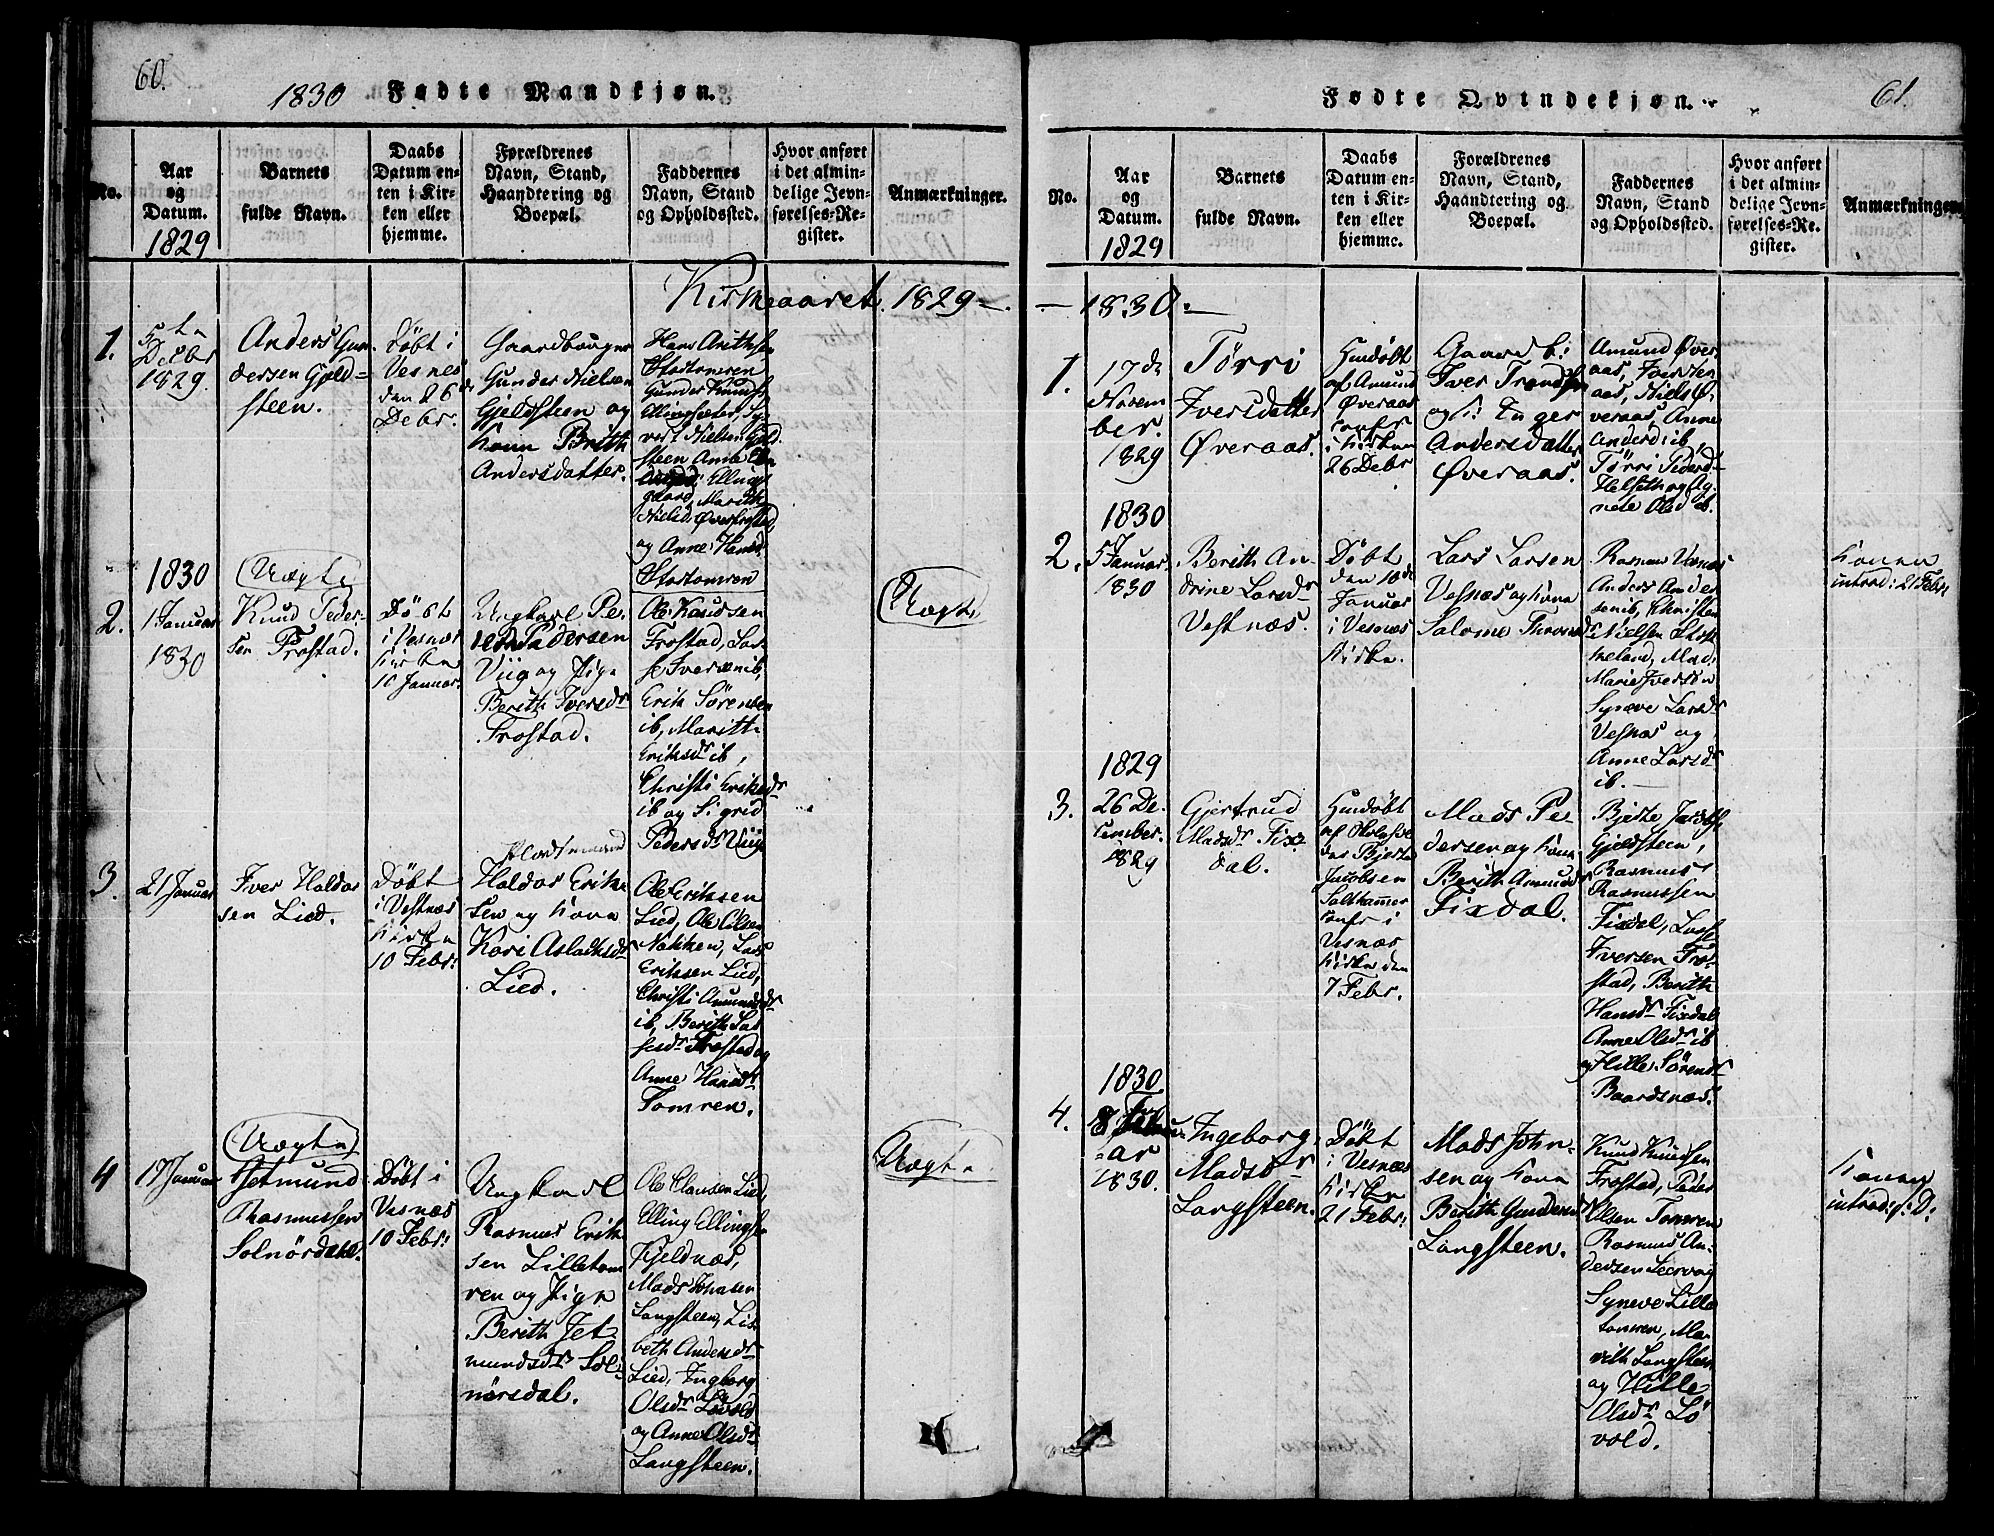 60.
1830 Fødte Mandkjøn.
No.
Aar
og
Datum.
1829
Barnets
fulde Navn.
Daabs
Datum en-
ten i Kir-
ken eller
hjemme.
Forældrenes
Navn, Stand,
Haandtering og
Boepæl.
Faddernes
Navn, Stand
og Opholdssted.
Hvor anført
i det almin-
delige Jevn-
førelses-Re-
gister.
Anmærkninger.
Kirkeaaret 1829-
1.
5te
Debr
1829.
Anders Gun-
dersen Gjeld-
steen.
Døbt i
Vesnes
den 26
Debr.
Gaardbruger
Gunder Nielsen
Gjeldsteen og
Kone Brith
Andersdatter.
Stortomren
Gunder Knuds
Ellingsæter, Sy-
vert Nielsen Gjeld-
steen Anne
Ellings
gaard, Marith
Nielsd. Øverfrostad,
og Anne Hansd
Stortomren
1830
Uægte
2.
1 Januar
1830
Knud Peder-
sen Frostad.
Døbt
i Vesnæs
Kirke
10 Januar.
Ungkarl Pe-
der Pedersen
Viig og Pige
Berith Iversdr
Frostad.
Ole Knudsen
Frostad, Las-
se Iversen ib,
Erik Sørensen
ib, Marith
Eriksdr ib,
Christi Eriksdr
ib og Sigrid
Pedersdr Viig
Uægte
3.
21 Januar
Iver Haldor
sen Lied.
Døbt
i Vestnæs
Kirke
10 Febr:
Pladsmand
Haldor Erik-
sen og Kone
Kari Aslaksdr
Lied.
Ole Eriksen
Lied, Ole Olsen
Nakken, Lars
Eriksen Lied,
Christi Amundsdr
ib, Berith Las-
sesdr Frostad og
Anne Hansdr
Tomren.
Uægte
4
17 Januar
Jetmund
Rasmussen
Solnørdahl.
Døbt i
Vesnæs
10 Febr:
Ungkarl
Rasmus Erik
sen Lilletom
ren og Pige
Berith Jet
mundsdr Sol-
nørsdal.
Ole Clausen Lied,
Elling Ellingsen
Kjeldnæs,
Mads Johnsen
Langsteen, Lis-
beth Andersdr
Lied, Ingborg
Olsdr Løvold
og Anne Olsdr
Langsteen.
Uægte
Fødte Qvindekjøn.
61.
No.
Aar
og
Datum.
1829
Barnets
fulde Navn.
Daabs
Datum en-
ten i Kir-
ken eller
hjemme.
Forældrenes
Navn, Stand,
Haandtering og
Boepæl.
Faddernes
Navn, Stand
og Opholdssted.
Hvor anført
i det almin-
delige Jevn-
førelses-Re-
gister.
Anmærkninger.
- 1830.-
1.
17de
Novem
ber.
1829
Tørri
Iversdatter
Øveraas.
Hiødøbt
af Amund
Øveraas
confr
i Kirken
26 Debr
Gaardb:
Iver Trondsen
og K: Inger
Andersdatter
Øveraas.
Amund Øver-
aas, Iver
aas, Niels Ø-
veraas, Anne
Andersd ib
Tørri Pedersd
Helseth og Ag-
nete Olsd ib.
1830
2.
5 Januar
1830
Berith An-
drine Larsdr
Vestnæs.
Døbt
den 10de
Januar
i Vesnæs
Kirke.
Lars Larsen
Vesnæs og Kone
Salome
Rasmus Vesnæs
Anders Ander
sen ib, Christen
Nielsen
Mad:
Marie Iversen
Synæve Larsdr
Vesnæs og
Anne Larsdr
ib.
Konen
introd: 21 Febr
1829
3.
26 De-
cember.
1829
Gjertrud
Madsdr Fix-
dal.
Hiødøbt
af
Bjerte
Jacobsen
Saltkammer
confr i
Vesnæs
Kirke den
7 Febr.
Mads Pe
dersen og Kone
Berith Amundsdr
Fixdal.
Bjerte
Gjeldsteen,
Rasmus
Rasmussen
Fixdal, Lasse
Iversen Fro-
stad, Berith
Hansdr Fixdal
Anne Olsdr ib
og Hille Sørensdr
Baardsnæs.
1830
4.
18
ar
1830.
Ingeborg
Madsdr
Langsteen.
Døbt
i Vesnæs
Kirke
21 Febr:
Mads John-
sen og Kone
Berith Gundersdr
Langsteen.
Knud Knudsen
Frostad, Peder
Olsen Tomren
Rasmus An-
dersen Leervog
Syneve Lille
tomren, Ma-
rith Langsteen
og Hille
Olsdr Lø
vold.
Konen
introd: s: D: